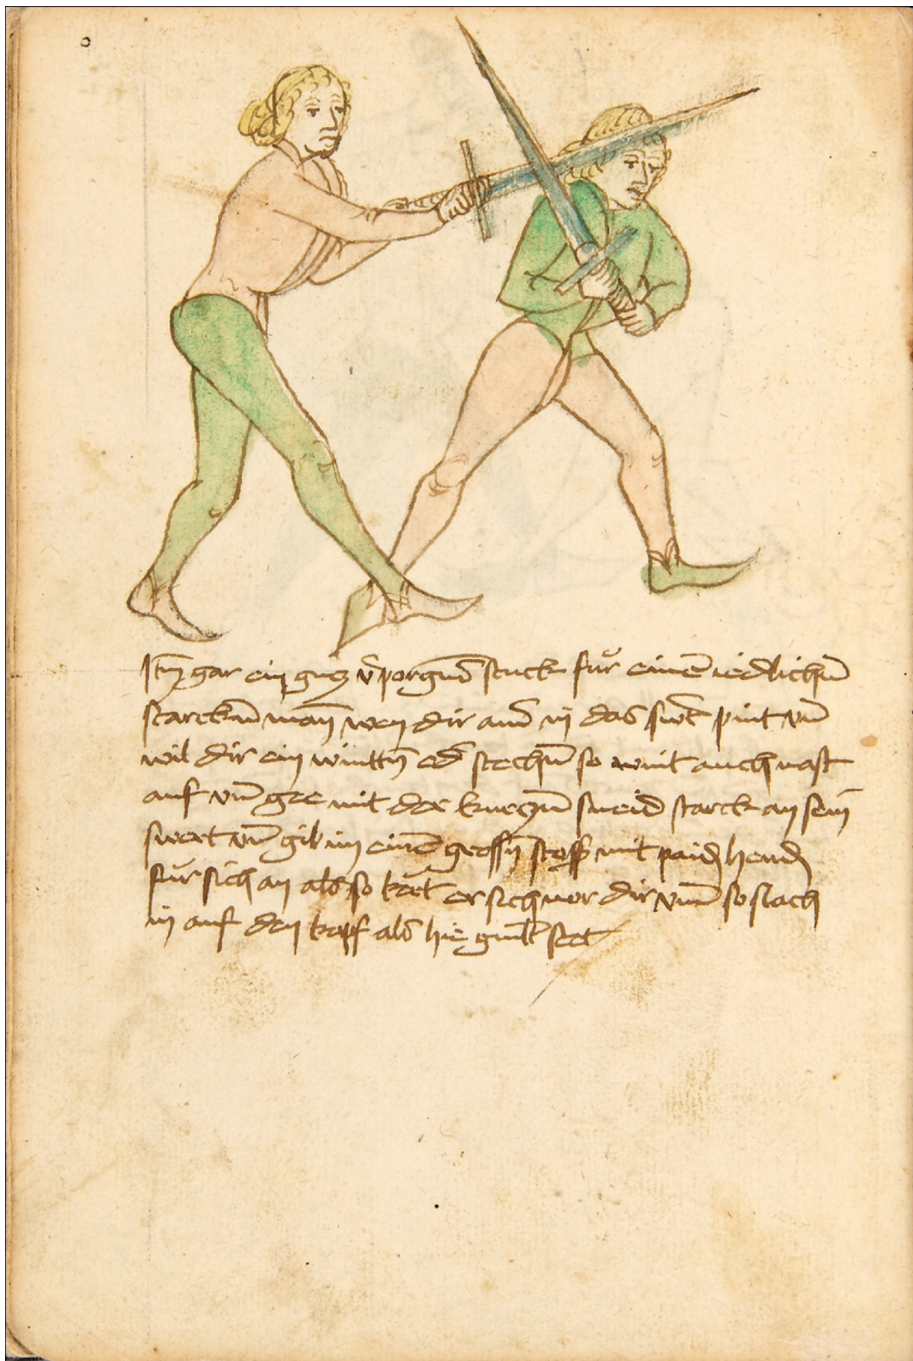 Itm gar ein gucz v̄porgnd stuck für einē iedlichn̄
starckn̄ man̄ wen dir ainꝰ in das swt pint vn̄
wil dir ein wintn̄ odꝰ stechn̄ so wint auch vast
auf vn̄ gee mit der kurczn̄ sneid starck an sein̄
swert vn̄ gib im einē grossn̄ stoss mit paidn̄ hendn̄
für sich an also so kert er sich vor dir vm̄ so slach
in auf den kopf als hie gmlt stet